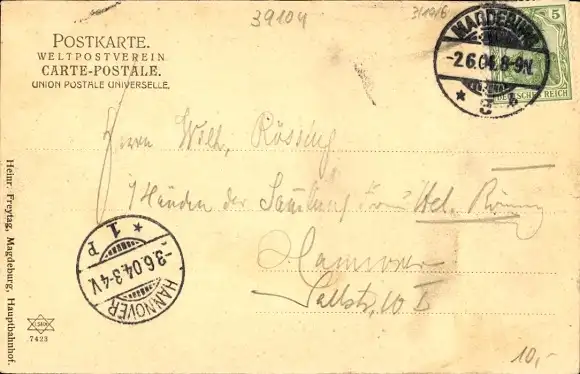 39104
31916
POSTKARTE.
WELTPOSTVEREIN
CARTE-POSTALE.
UNION POSTALE UNIVERSELLE.
MAGDEBURG
-2.6.04.8-9N.
* 3 *
5
DEUTSCHES REICH
Herrn Wilh. Rössing
der
Hannover
Sallstr. 10 I
* 1 *
P
-3.6.04.3-4V.
HANNOVER
Heinr. Freytag, Magdeburg, Hauptbahnhof.
7423
10,-